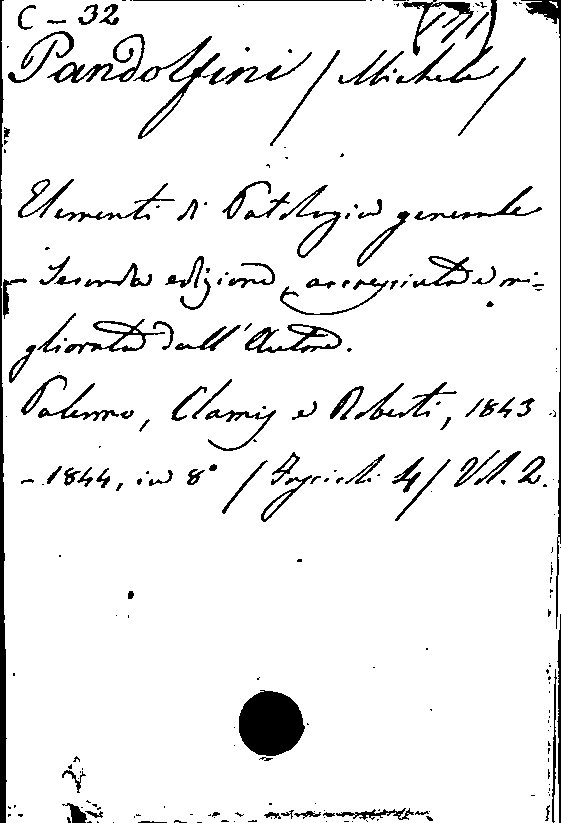 C - 32
Pandolfini / Michele /
Elementi di Patologia generale
- Seconda edizione, accresciuta e mi=
gliorata dall'Autore.
Palermo, Clamis e Roberti, 1843
- 1844, in 8° / Fascicoli 4 / Vol. 2.